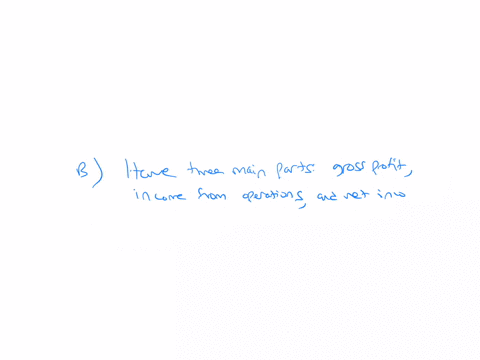 B) Have three main parts: gross profit,
income from operations, and net inco